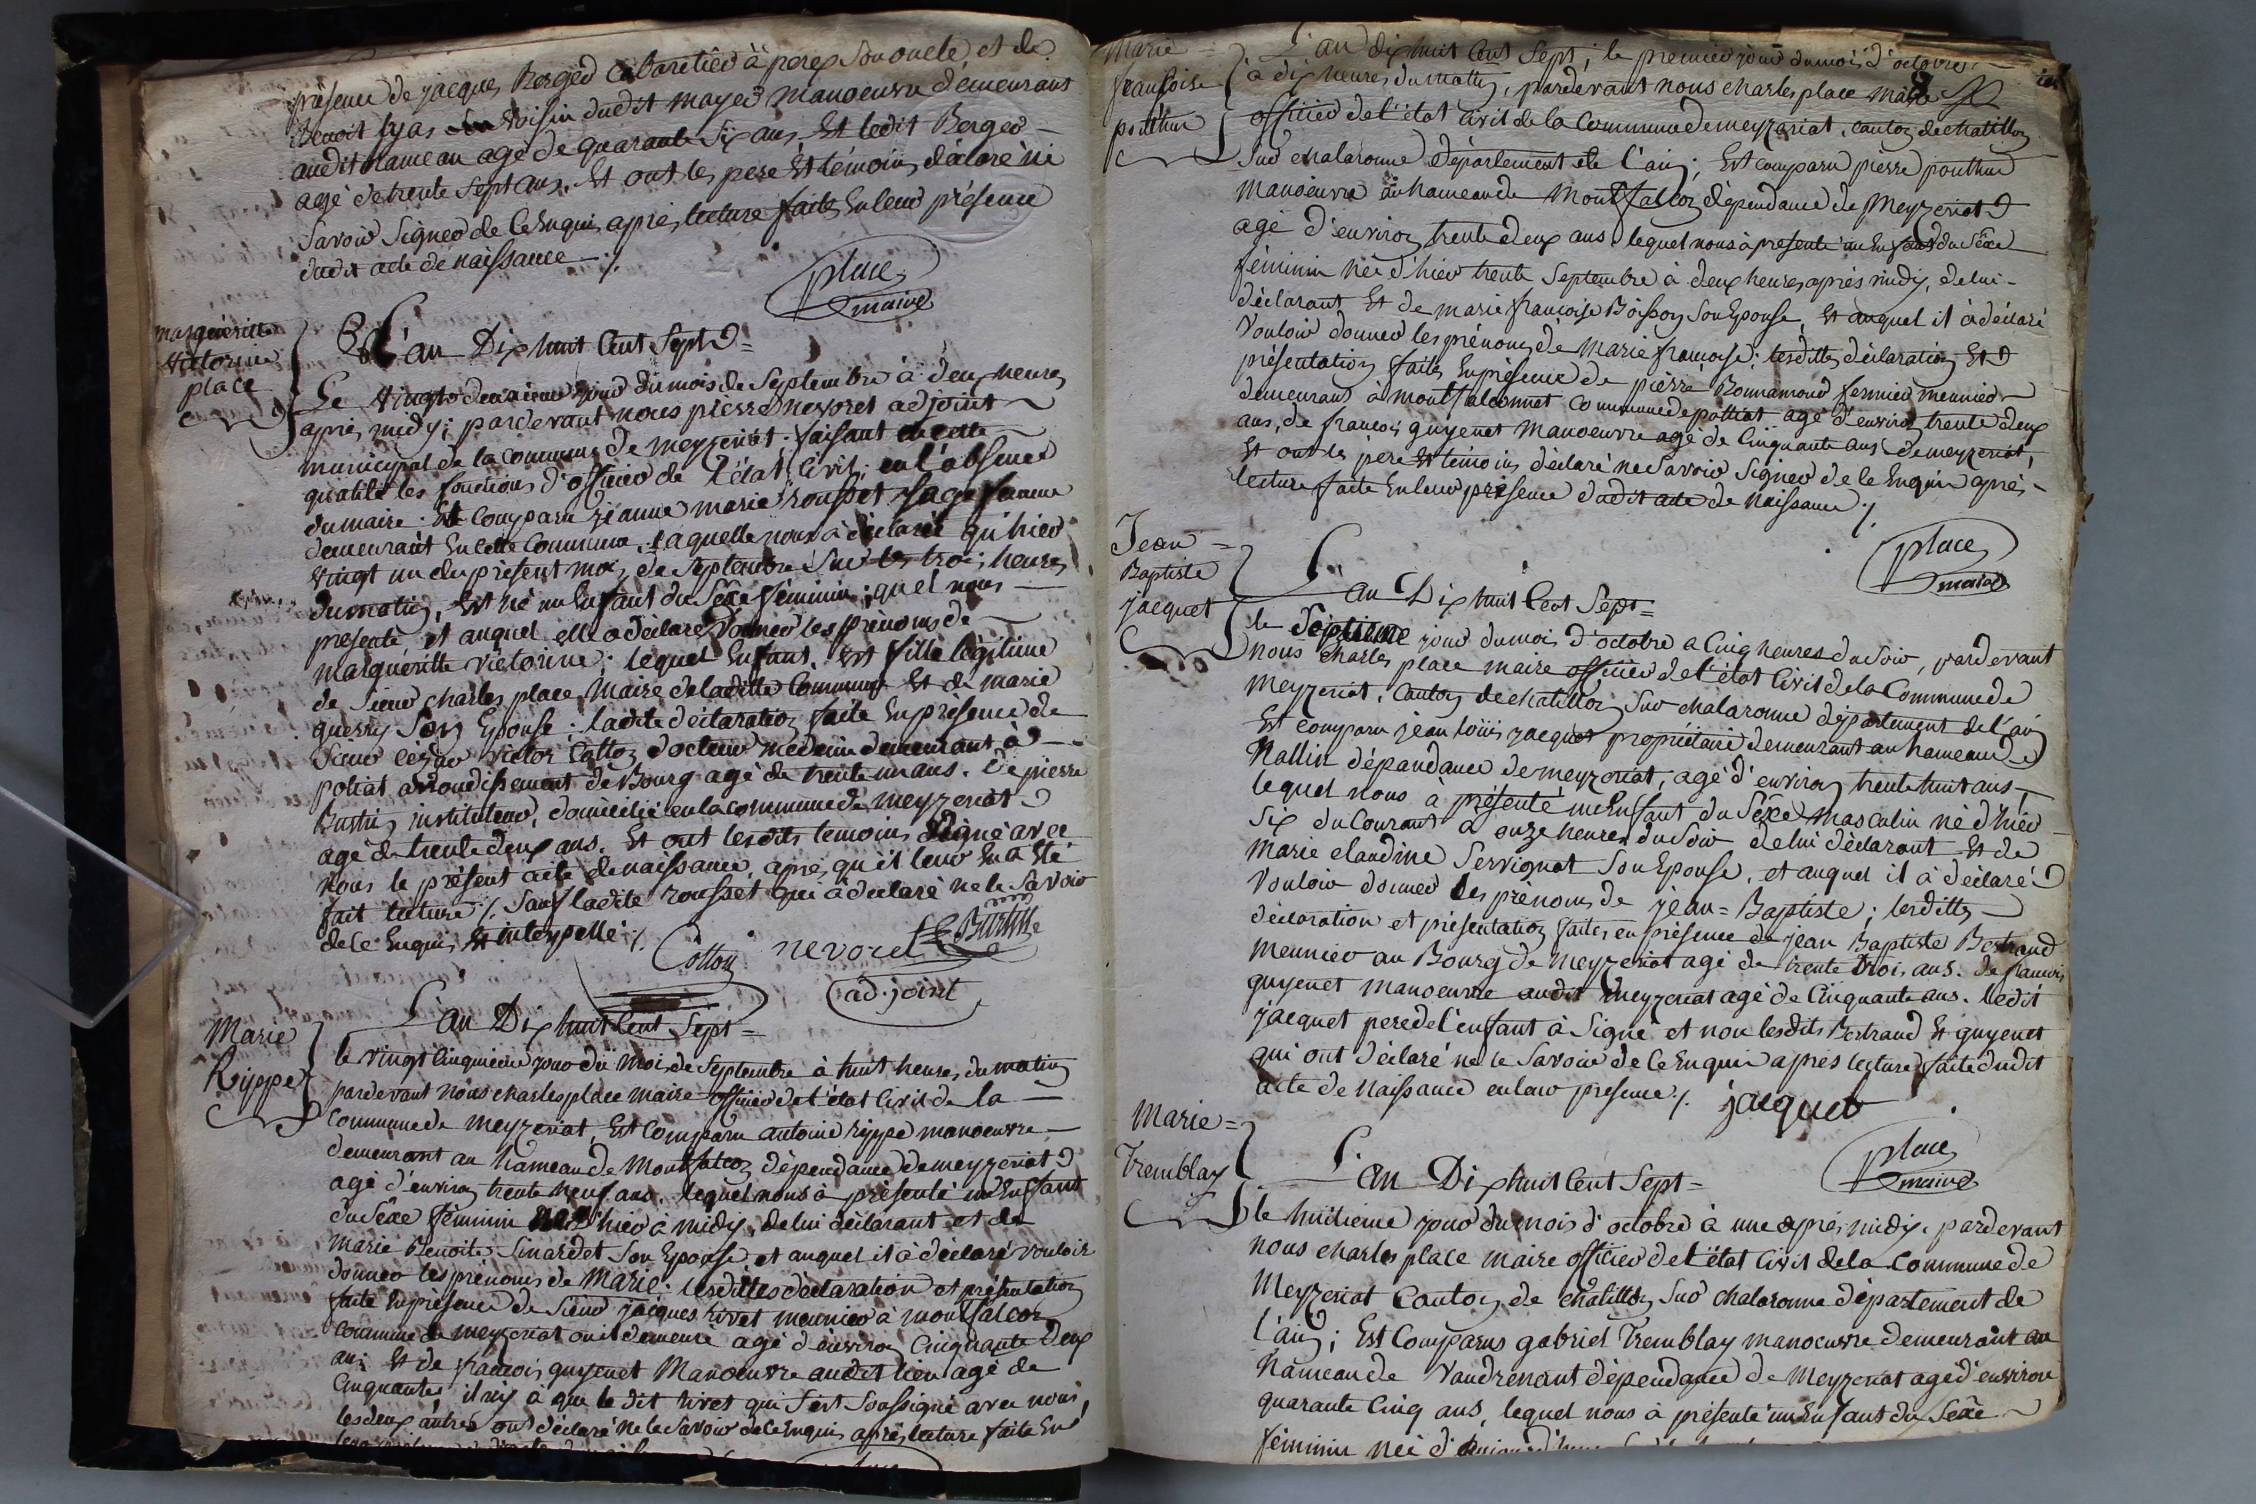 présence de jacques Berged cabaretier à perex son oncle, et de
Benoit lyas voisin dudit mayed manoeuvre demeurant
audit hameau agé de quarante six ans, Et ledit Berged
agé de trente sept ans. Et ont les pere Et témoins déclaré ne
Savoir Signer de Ce Enquis après lecture faite En leur présence
dudit acte de naissance ./.
place
maire
marguéritte
victorine
place
L'an Dix huit Cent Sept =
Le vingt deuxieme jour du mois de Septembre à deux heures
après midy; pardevant nous pierre nevoret adjoint
municipal de la commune de meyzeriat. faisant en cette
qualité les fonctions d'officier de l'état Civil; en l'absence
du maire. Est comparu jeanne marie rousset sage femme
demeurant En cette Commune. laquelle nous à déclaré qu'hier
vingt un du présent mois de Septembre Sur les trois heures
du matin, Est né un Enfant du Sexe féminin; quel nous
presenté et auquel elle a déclaré donner les prénoms de
marguéritte victorine; lequel Enfant, Est fille légitime
de Sieur charles place Maire de laditte Commune Et de marie
querry Son Epouse; ladite déclaration faite En présence de
Sieur victor Cotton docteur médecin demeurant à
poliat arrondissement de Bourg agé de trente un ans. De pierre
instituteur, domicilié en la commune de meyzeriat
agé de trente deux ans. Et ont lesdits temoins Signé avec
nous le présent acte de naissance, après qu'il leur En a Eté
fait lecture ./. Sauf ladite rousset qui à déclaré ne le Savoir
de Ce Enquis Et interpellé ./.
Cotton nevoret
adjoint
Marie
Rippe
L'an Dix huit Cent Sept =
le vingt Cinquieme jour du Mois de Septembre à huit heures du matin
pardevant nous charles place maire officier de l'état Civil de la
commune de meyzeriat, Est Comparu antoine rippe manoeuvre
demeurant au hameau de Montfalcon dépendance de meyzeriat
agé d'environ trente neuf ans. lequel nous à présenté un Enfant
du Sexe féminin d'hier à midy, de lui déclarant et de
marie Benoite Sinardet Son Epouse, et auquel il à déclaré vouloir
donner les prénoms de Marie. lesdittes déclaration et présentation
faite En présence de Sieur jacques rivet meunier à montfalcon
commune de meyzeriat ou il demeure agé d'environ Cinquante deux
ans Et de francois guyenet Manoeuvre audit lieu agé de
Cinquante, il n'y à que le dit rivet qui S'est Soussigné avec nous,
les deux autres ont déclaré ne le Savoir de Ce Enquis après lecture faite En
Marie =
françoise
pouthus
L'an dix huit Cent Sept; le premier jour du mois d'octobre
à dix heures du matin, pardevant nous charles place maire
officier de l'état Civil de la Commune de meyzeriat, canton de chatillon
Sur chalaronne département de l'ain; Est comparu pierre pouthus
Manoeuvre au hameau de Montfalcon dépendance de Meyzeriat
agé d'environ trente deux ans. lequel nous à presenté un Enfant du Sexe
féminin née d'hier trente Septembre à deux heures après midy, de lui
déclarant Et de marie françoise Boisson Son Epouse, Et auquel il à déclaré
Vouloir donner les prénoms de Marie françoise; lesdittes déclaration Et
présentation faites En présence de pierre Bonnamour fermier meunier
demeurant à montfalconnet Commune de polliat agé d'environ trente deux
ans, de francois guyenet Manoeuvre agé de Cinquante ans de meyzeriat,
Et ont les père Et témoins déclaré ne Savoir Signer de Ce Enquis après
lecture faite En leur présence dudit acte de Naissance ./.
place
maire
Jean =
Baptiste
jacquet
L'an Dix huit Cent Sept =
le Septieme jour du mois d'octobre a Cinq heures du Soir, pardevant
nous charles place maire officier de l'état Civil de la Commune de
meyzeriat, canton de chatillon Sur chalaronne département de l'ain
Est comparu jean louis jacquet propriétaire demeurant au hameau de
Nallin dépandance de meyzeriat, agé d'environ trente huit ans,
lequel nous à présenté un Enfant du Sexe Masculin né d'hier
Six du Courant à onze heures du Soir de lui déclarant Et de
Marie claudine Servignat Son Epouse, et auquel il à déclaré
Vouloir donner les prénoms de jean = Baptiste; lesdittes
déclaration et présentation faites en présence de jean Baptiste Bertrand
Meunier au Bourg de Meyzeriat agé de trente trois ans. de francois
guyenet manoeuvre audit Meyzeriat agé de Cinquante ans. ledit
jacquet pere de l'enfant à Signé et non lesdits Bertrand Et guyenet
qui ont déclaré ne le Savoir de Ce Enquis après lecture faite dudit
acte de Naissance en leur présence ./. jacquet
place
maire
Marie =
Tremblay
L'an Dix huit Cent Sept =
le huitieme jour du mois d'octobre à une après midy, pardevant
nous charles place maire officier de l'état Civil de la Commune de
Meyzeriat Canton de chatillon Sur chalaronne département de
l'ain; Est Comparus gabriel Tremblay manoeuvre demeurant au
hameau de Vaudrenant dépendance de Meyzeriat agé d'environ
quarante Cinq ans, lequel nous à présenté un Enfant du Sexe
féminin née